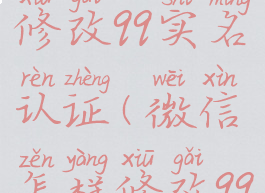 xiū gǎi shí míng
修改99实名
rèn zhèng wēi xìn
认证(微信
zěn yàng xiū gǎi
怎样修改99